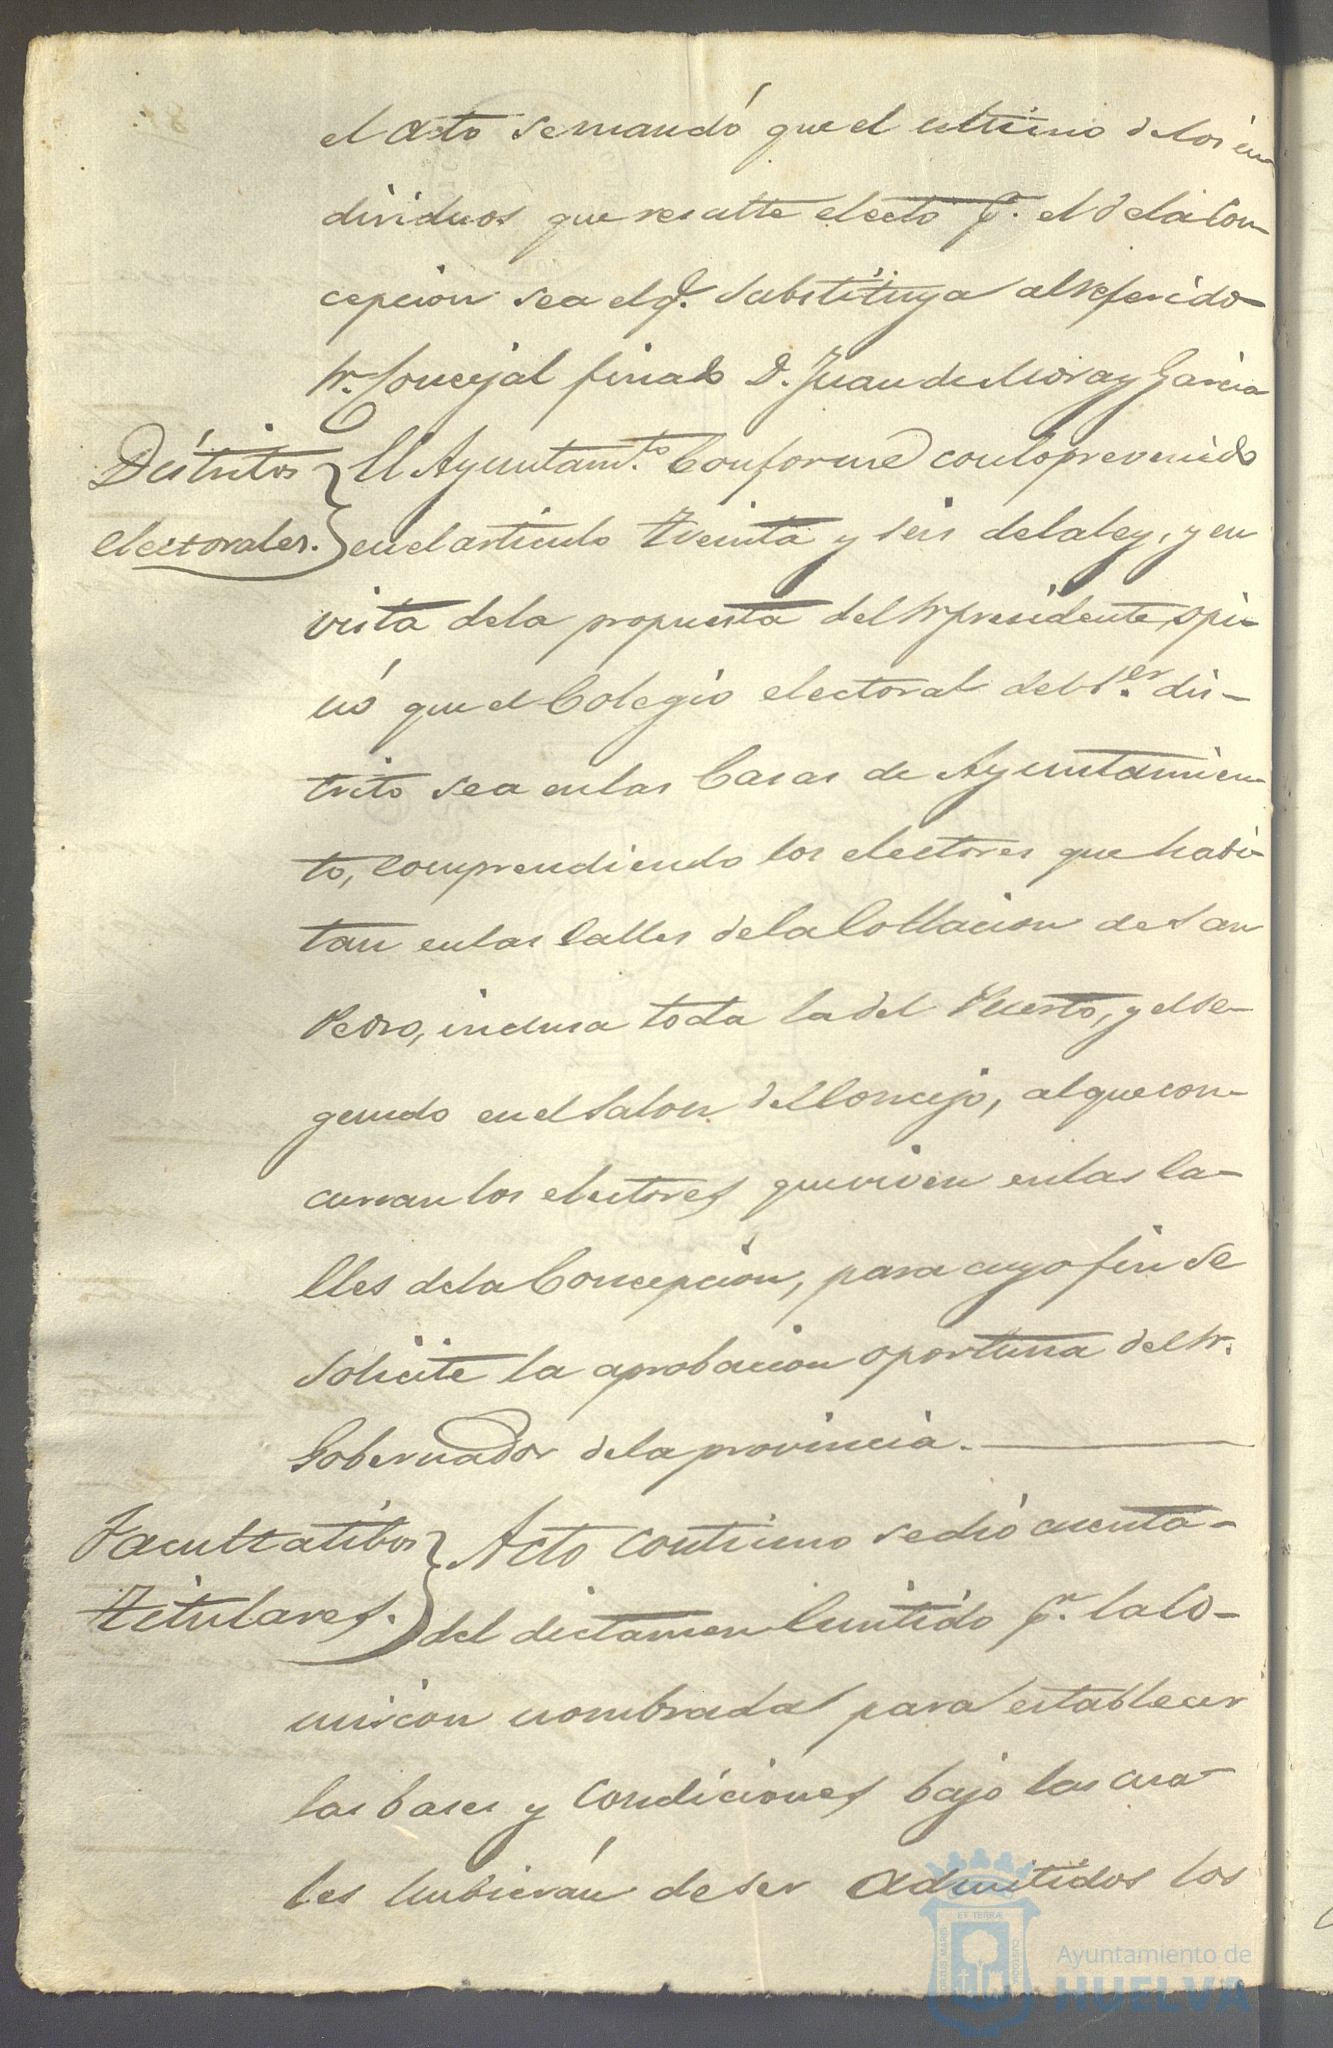 el acto se mandó que el ultimo de los in
dividuos que resulte electo p.r el de la Con-
cepcion sea el q.e substituya al referido
Sr. Concejal finado D. Juan de Mora y Garcia
Distritos
electorales.
El Ayuntam.to Conforme con lo prevenido
en el articulo treinta y seis de la ley, y en
vista de la propuesta del Sr presidente, opi-
nó que el Colegio electoral del 1.er dis-
trito sea en las Casas de Ayuntamien-
to, comprendiendo los electores que habi-
tan en las Calles de la Collacion de San
Pedro, inclusa toda la del Puerto, y el se-
gundo en el Salon del Concejo, al que con-
curran los electores que viven en las Ca-
lles de la Concepcion, para cuyo fin se
solicite la aprobacion oportuna del Sr.
Gobernador de la provincia.
Facultatibos
Titulares.
Acto continuo se dió cuenta
del dictamen Emitido p.r la Co-
mision nombrada para establecer
las bases y condiciones bajo las cua-
les hubierán de ser admitidos los
Ayuntamiento de
HUELVA